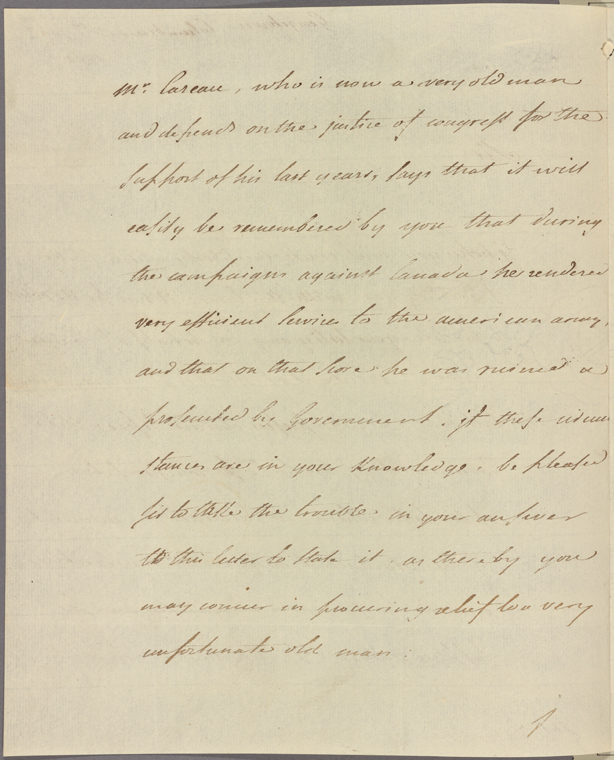 Mr. Cazeau, who is now a very old man
and depends on the justice of congress for the
support of his last years, says that it will
easily be remembered by you that during
the campaigns against Canada he rendered
very efficient services to the american army,
and that on that score he was ruined a
prosecuted by Government. if these circum
stances are in your knowledge. be pleased
sir to take the trouble in your answer
to this letter to state it. as thereby you
may concur in procuring relief to a very
unfortunate old man.